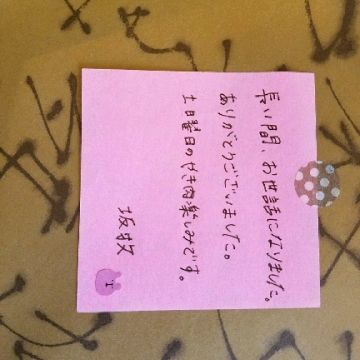 長い間、お世話になりました。
ありがとうございました。
土曜日のやき肉楽しみです。
坂牧